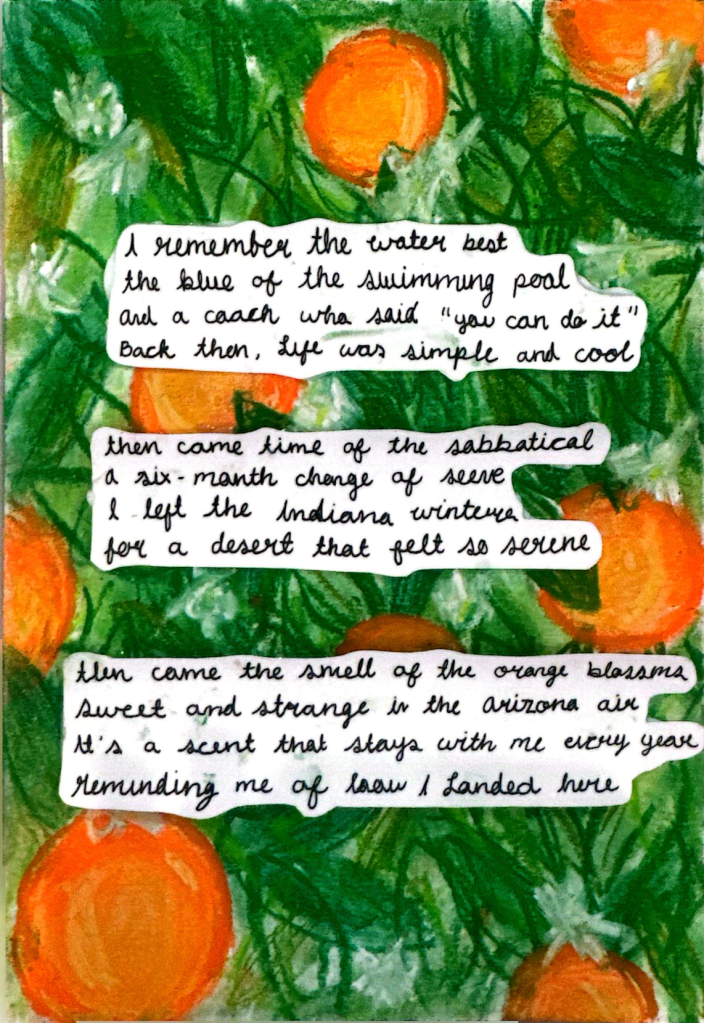 I remember the water best
the blue of the swimming pool
and a coach who said "you can do it"
Back then, Life was simple and cool
then came time of the sabbatical
a six-month change of scene
I left the Indiana winters
for a desert that felt so serene
then came the smell of the orange blossoms
sweet and strange in the Arizona air
It's a scent that stays with me every year
reminding me of how I Landed here